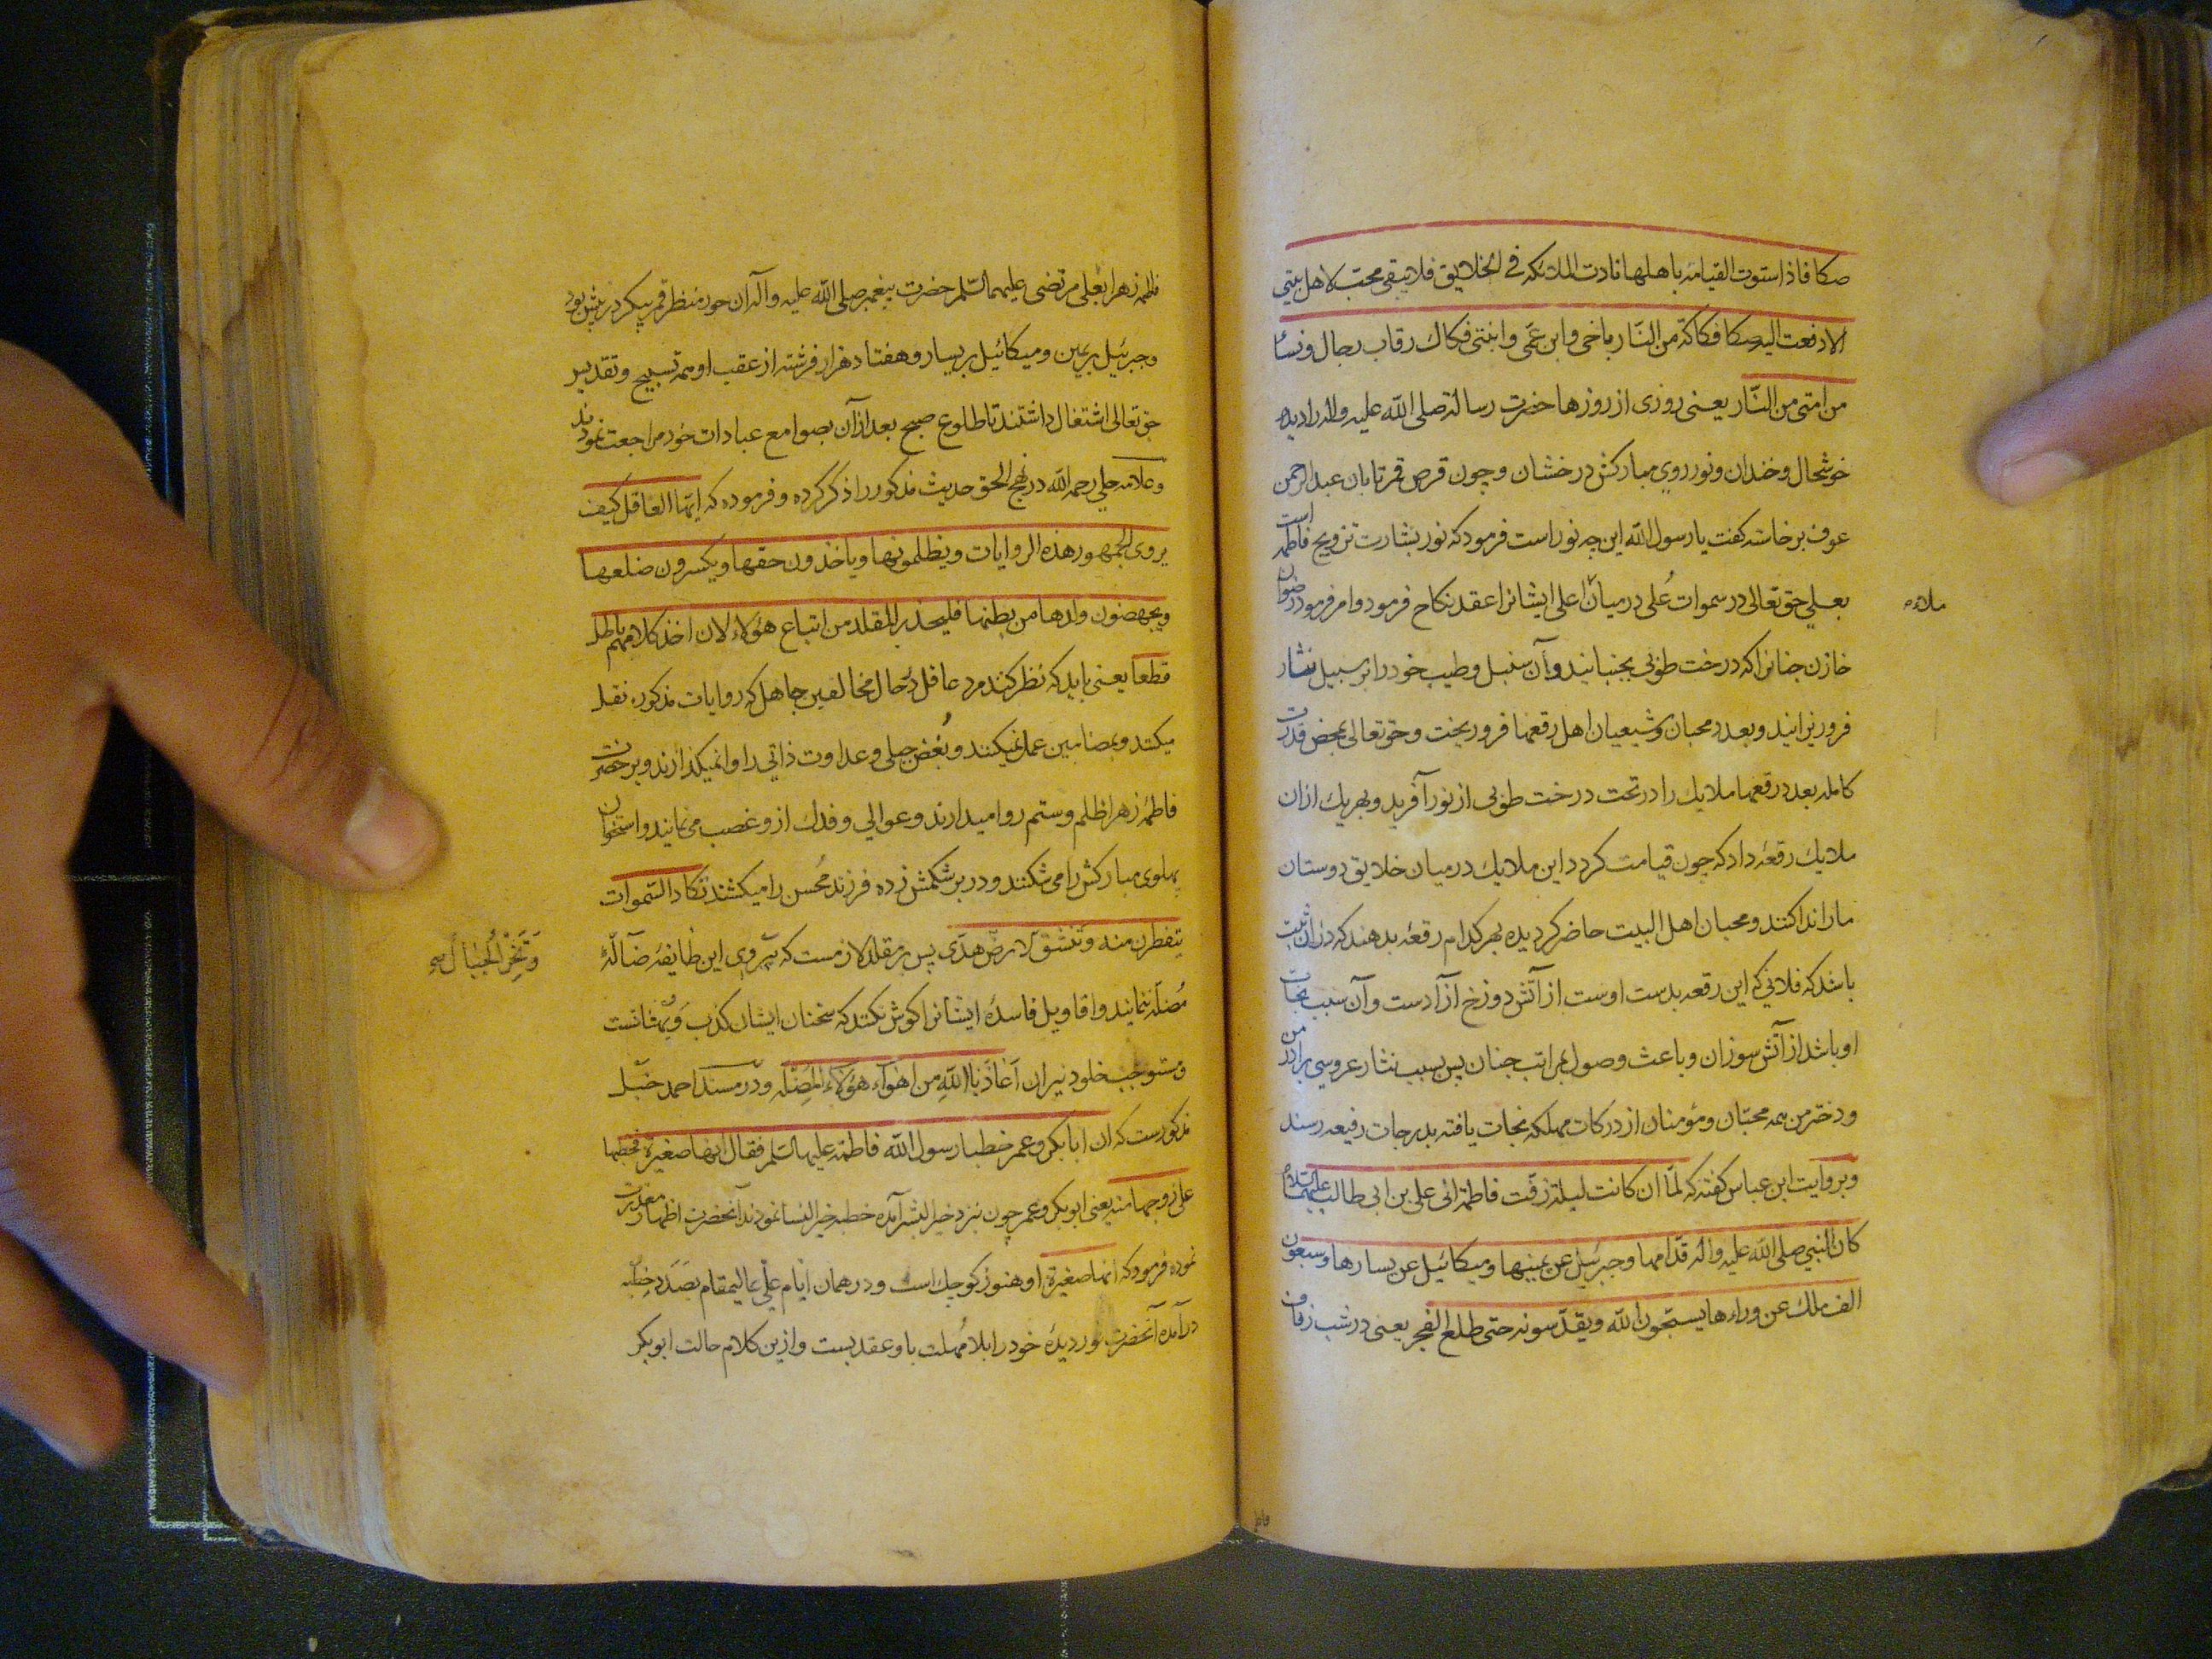 صکا فاذا استوت القیامة باهلها نادت الملائکه فی الخلایق فلا یبقی محب لاهل بیتی
الا دفعت الیه صکا فکاکه من النار باخی و ابن عمی و ابنتی فکاک رقاب رجال و نسأ
من امتی من النار یعنی روزی از روزها حضرت رسالة صلی الله علیه و اله را دیدم
خوشحال و خندان و نور روی مبارکش درخشان و چون قرص قمر تابان عبد الرحمن
عوف برخاسته کفت یا رسول الله این چه نور است فرمود که نور بشارت تزویج فاطمه است
بعلی حق تعالی در سموات علی در میان ملاء اعلی ایشانرا عقد نکاح فرمود و امر فرمود رضوان
خازن جنانرا که درخت طوبی بجنبانید و آن سنبل و طیب خود را بر سبیل نثار
فرو ریزانید و بعدد محبان و شیعیان اهل رقعها فرو ریخت و حق تعالی بمحض قدرت
کامله بعدد رقعها ملایک را در تحت درخت طوبی از نور آفرید و بهر یک ازان
ملایک رقعه داد که چون قیامت کردد این ملایک در میان خلایق دوستان
ما را ندا کنند و محبان اهل البیت حاضر کردیده بهر کدام رقعه بدهند که دران ثبت
باشد که فلانی که این رقعه بدست اوست از آتش دوزخ آزادست و آن سبب نجات
او باشد از آتش سوزان و باعث وصول بمراتب جنان پس بسبب نثار عروسی برادر من
و دختر من همه محبان و مؤمنان از درکات مهلکه نجات یافته بدرجات رفیعه رسند
و بروایت ابن عباس کفته که لما ان کانت لیلة زفت فاطمة الی علی بن ابی طالب علیهما السلام
کان النبی صلی الله علیه و اله قدامها و جبرئیل عن یمینها و میکائیل عن یسارها و سبعون
الف ملک عن وراءها یسبحون الله و یقدسونه حتی طلع الفجر یعنی در شب زفاف
فاطمه زهرا بعلی مرتضی علیهما السلم حضرت پیغمبر صلی الله علیه و آله آن حور منظر قمر پیکر در پیش بود
و جبرئیل بر یمین و میکائیل بر یسار و هفتاد هزار فرشته از عقب او همه تسبیح و تقدیس
حق تعالی اشتغال داشتند تا طلوع صبح بعد از آن بصوامع عبادات خود مراجعت نمودند
و علامه حلی رحمه الله در نهج الحق حدیث مذکور را ذکر کرده و فرموده که ایها العاقل کیف
یروی الجمهور هذه الروایات و یظلمونها و یاخذون حقها و یکسرون ضلعها
و یجهضون ولدها من بطنها فلیحذر المقلد من اتباع هؤلاء لان اخذ کلامهم باطل
قطعا یعنی باید که نظر کند مرد عاقل در حال مخالفین جاهل که روایات مذکوره نقل
میکنند و بمضامین عمل نمیکنند و بغض جبلی و عداوت ذاتی را وانمیکذارند و بر حضرت
فاطمۀ زهرا ظلم و ستم روا میدارند و عوالی و فدک از و غصب می نمایند و استخوان
پهلوی مبارکش را می شکنند و در بر شکمش زده فرزند محسن را میکشند تکاد السموات
یتفطرن منه و تنشق الارض هدی پس بر مقلد لازمست که پیروی این طایفۀ ضاله
و تخر الجبال
مضله ننمایند و اقاویل فاسدۀ ایشانرا کوش نکنند که سخنان ایشان کذب و بهتانست
و مستوجب خلود نیران اعاذنا الله من اهواء هؤلاء المضلة و در مسند احمد حنبل
مذکورست که ان ابابکر و عمر خطبا رسول الله فاطمة علیها السلم فقال انها صغیرة فخطبها
علی فزوجها منه یعنی ابوبکر و عمر چون نزد خیر البشر آمده خطبه خیر النسا نمودند آنحضرت اظهار معذرت
نموده فرمود که انها صغیرة او هنوز کوچک است و در همان ایام علی عالیمقام بصدد خطبه
درآمده آنحضرت نور دیدۀ خود را بلا مهلت با و عقد بست و ازین کلام حالت ابوبکر